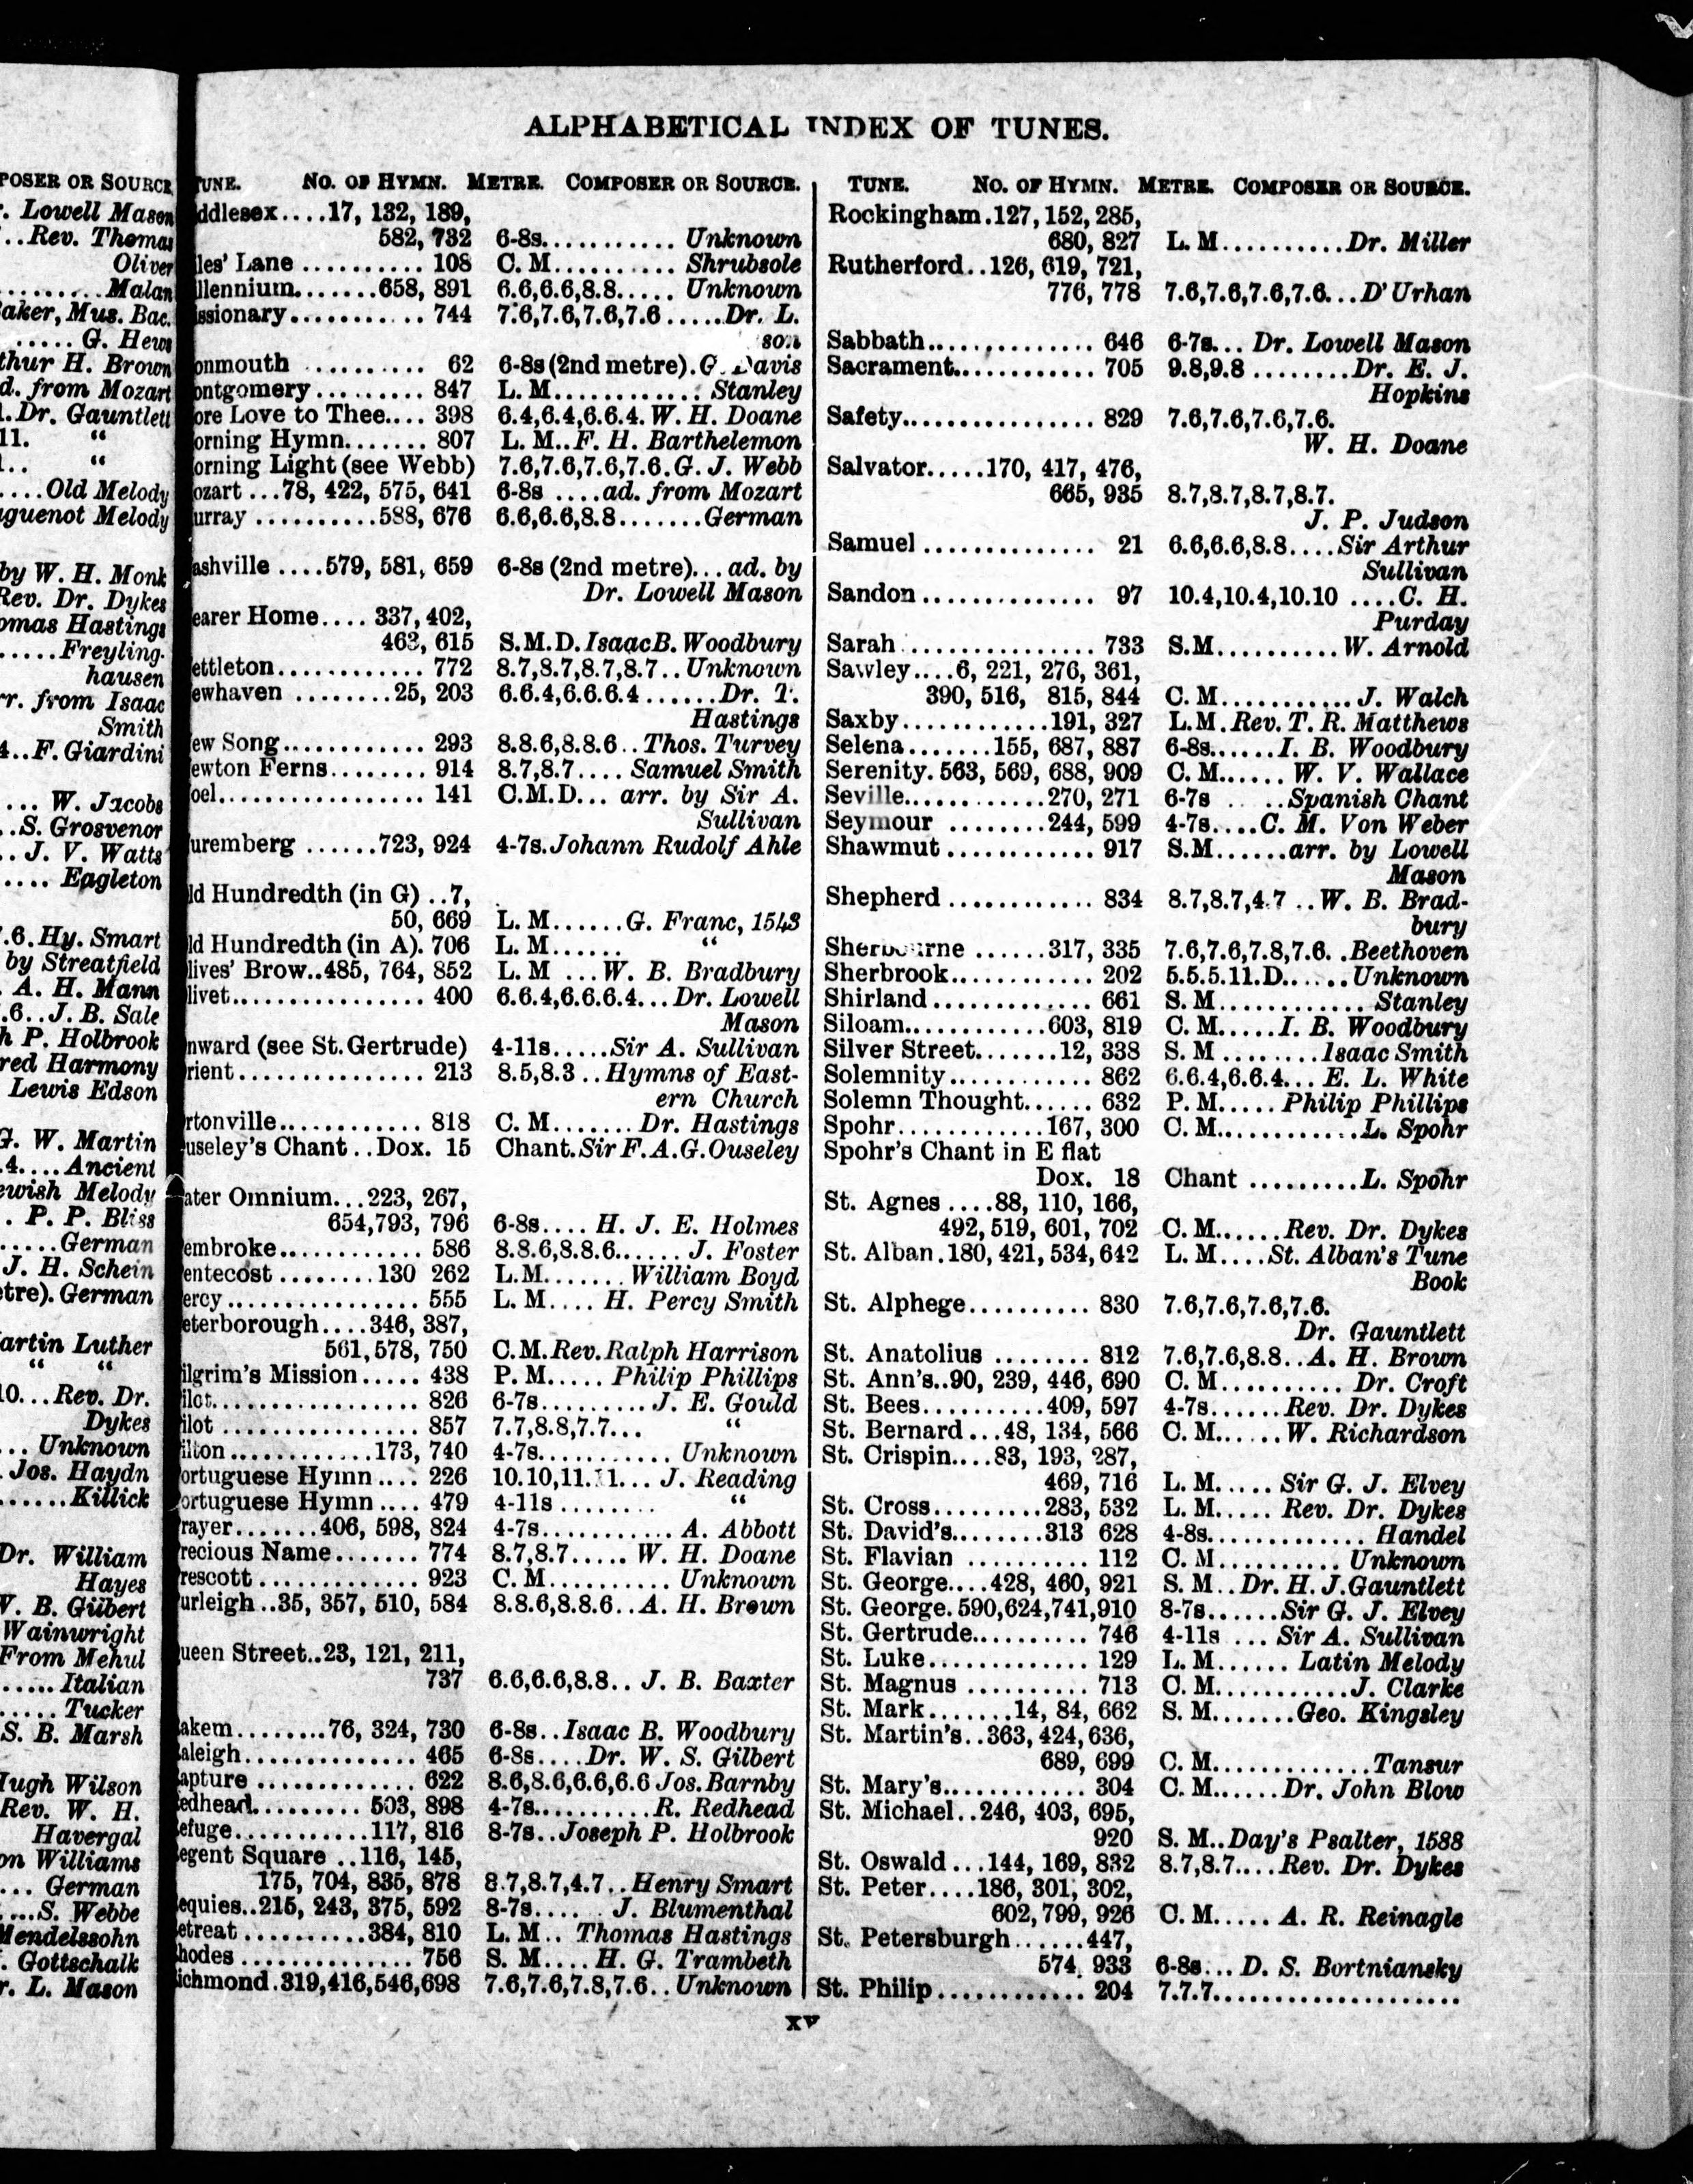 ALPHABETICAL INDEX OF TUNES.
POSER OR SOURCE
. Lowell Mason
..Rev. Thomas
Oliver
........Malan
aker, Mus. Bac.
.....G. Hews
thur H. Brown
d. from Mozart
l..Dr. Gauntlett
11. "
l.. "
....Old Melody
uguenot Melody
by W. H. Monk
Rev. Dr. Dykes
omas Hastings
.....Freyling-
hausen
rr. from Isaac
Smith
4..F. Giardini
... W. Jacobs
..S. Grosvenor
.. J. V. Watts
.... Eagleton
.6. Hy. Smart
by Streatfield
. A. H. Mann
.6..J. B. Sale
h P. Holbrook
red Harmony
Lewis Edson
G. W. Martin
.4....Ancient
ewish Melody
. P. P. Bliss
.....German
J. H. Schein
etre). German
artin Luther
" "
10...Rev. Dr.
Dykes
... Unknown
. Jos. Haydn
......Killick
Dr. William
Hayes
V. B. Gilbert
Wainwright
From Mehul
..... Italian
..... Tucker
S. B. Marsh
Hugh Wilson
Rev. W. H.
Havergal
on Williams
... German
....S. Webbe
Mendelssohn
. Gottschalk
r. L. Mason
TUNE. NO. OF HYMN. METRE. COMPOSER OR SOURCE.
ddlesex....17, 132, 189,
582, 732 6-8s........... Unknown
les' Lane .......... 108 C. M.......... Shrubsole
llennium.......658, 891 6.6,6.6,8.8..... Unknown
ssionary........... 744 7.6,7.6,7.6,7.6.....Dr. L.
son
onmouth .......... 62 6-8s (2nd metre). G. Davis
ontgomery ......... 847 L. M............ Stanley
ore Love to Thee.... 398 6.4,6.4,6.6.4. W. H. Doane
orning Hymn....... 807 L. M..F. H. Barthelemon
orning Light (see Webb) 7.6,7.6,7.6,7.6. G. J. Webb
ozart ...78, 422, 575, 641 6-8s ....ad. from Mozart
urray ..........588, 676 6.6,6.6,8.8.......German
ashville ....579, 581, 659 6-8s (2nd metre)...ad. by
Dr. Lowell Mason
earer Home.... 337, 402,
463, 615 S.M.D. Isaac B. Woodbury
ettleton............ 772 8.7,8.7,8.7,8.7.. Unknown
ewhaven ........25, 203 6.6.4,6.6.6.4......Dr. T.
Hastings
ew Song............ 293 8.8.6,8.8.6.. Thos. Turvey
ewton Ferns........ 914 8.7,8.7.... Samuel Smith
oel................. 141 C.M.D... arr. by Sir A.
Sullivan
uremberg ......723, 924 4-7s. Johann Rudolf Ahle
ld Hundredth (in G) ..7,
50, 669 L. M......G. Franc, 1543
ld Hundredth (in A). 706 L. M...... "
lives' Brow..485, 764, 852 L. M ...W. B. Bradbury
livet................ 400 6.6.4,6.6.6.4...Dr. Lowell
Mason
nward (see St. Gertrude) 4-11s.....Sir A. Sullivan
rient................ 213 8.5,8.3..Hymns of East-
ern Church
rtonville............ 818 C. M....... Dr. Hastings
useley's Chant..Dox. 15 Chant. Sir F.A.G. Ouseley
ater Omnium...223, 267,
654,793, 796 6-8s.... H. J. E. Holmes
embroke............ 586 8.8.6,8.8.6...... J. Foster
entecost ........130 262 L.M....... William Boyd
ercy ................ 555 L. M.... H. Percy Smith
eterborough....346, 387,
561,578, 750 C.M. Rev. Ralph Harrison
ilgrim's Mission..... 438 P. M..... Philip Phillips
ilot................. 826 6-7s..........J. E. Gould
ilot ................ 857 7.7,8.8,7.7... "
ilton ............173, 740 4-7s........... Unknown
ortuguese Hymn .... 226 10.10,11.11... J. Reading
ortuguese Hymn .... 479 4-11s......... "
rayer.......406, 598, 824 4-7s............ A. Abbott
recious Name....... 774 8.7,8.7..... W. H. Doane
rescott ............. 923 C. M.......... Unknown
urleigh..35, 357, 510, 584 8.8.6,8.8.6..A. H. Brown
ueen Street..23, 121, 211,
737 6.6,6.6,8.8.. J. B. Baxter
akem........76, 324, 730 6-8s..Isaac B. Woodbury
aleigh.............. 465 6-8s....Dr. W. S. Gilbert
apture ............. 622 8.6,8.6,6.6,6.6 Jos. Barnby
edhead......... 503, 898 4-7s...........R. Redhead
efuge...........117, 816 8-7s..Joseph P. Holbrook
egent Square ..116, 145,
175, 704, 835, 878 8.7,8.7,4.7..Henry Smart
equies..215, 243, 375, 592 8-7s..... J. Blumenthal
etreat ..........384, 810 L. M.. Thomas Hastings
hodes .............. 756 S. M.... H. G. Trambeth
ichmond.319,416,546,698 7.6,7.6,7.8,7.6.. Unknown
TUNE. NO. OF HYMN. METRE. COMPOSER OR SOURCE.
Rockingham.127, 152, 285,
680, 827 L. M..........Dr. Miller
Rutherford..126, 619, 721,
776, 778 7.6,7.6,7.6,7.6...D'Urhan
Sabbath............... 646 6-7s... Dr. Lowell Mason
Sacrament............ 705 9.8,9.8 ........Dr. E. J.
Hopkins
Safety................ 829 7.6,7.6,7.6,7.6.
W. H. Doane
Salvator.....170, 417, 476,
665, 935 8.7,8.7,8.7,8.7.
J. P. Judson
Samuel .............. 21 6.6,6.6,8.8....Sir Arthur
Sullivan
Sandon .............. 97 10.4,10.4,10.10 ....C. H.
Purday
Sarah ............... 733 S.M..........W. Arnold
Sawley....6, 221, 276, 361,
390, 516, 815, 844 C. M............J. Walch
Saxby............191, 327 L.M. Rev. T. R. Matthews
Selena.......155, 687, 887 6-8s......I. B. Woodbury
Serenity. 563, 569, 688, 909 C. M...... W. V. Wallace
Seville.............270, 271 6-7s .. ..Spanish Chant
Seymour ........244, 599 4-7s....C. M. Von Weber
Shawmut ............ 917 S.M......arr. by Lowell
Mason
Shepherd ............ 834 8.7,8.7,4.7 ..W. B. Brad-
bury
Sherbourne ......317, 335 7.6,7.6,7.8,7.6..Beethoven
Sherbrook............ 202 5.5.5.11.D...... Unknown
Shirland ............. 661 S. M............. Stanley
Siloam............603, 819 C. M.....I. B. Woodbury
Silver Street.......12, 338 S. M ........Isaac Smith
Solemnity............ 862 6.6.4,6.6.4... E. L. White
Solemn Thought...... 632 P. M..... Philip Phillips
Spohr............167, 300 C. M.............L. Spohr
Spohr's Chant in E flat
Dox. 18 Chant .........L. Spohr
St. Agnes ....88, 110, 166,
492, 519, 601, 702 C. M......Rev. Dr. Dykes
St. Alban.180, 421, 534, 642 L. M....St. Alban's Tune
Book
St. Alphege.......... 830 7.6,7.6,7.6,7.6.
Dr. Gauntlett
St. Anatolius ........ 812 7.6,7.6,8.8..A. H. Brown
St. Ann's..90, 239, 446, 690 C. M.......... Dr. Croft
St. Bees..........409, 597 4-7s......Rev. Dr. Dykes
St. Bernard...48, 134, 566 C. M......W. Richardson
St. Crispin....83, 193, 287,
469, 716 L. M..... Sir G. J. Elvey
St. Cross.........283, 532 L. M..... Rev. Dr. Dykes
St. David's........313 628 4-8s.............. Handel
St. Flavian .......... 112 C. M.......... Unknown
St. George....428, 460, 921 S. M..Dr. H. J. Gauntlett
St. George. 590,624,741,910 8-7s......Sir G. J. Elvey
St. Gertrude.......... 746 4-11s ... Sir A. Sullivan
St. Luke............. 129 L. M...... Latin Melody
St. Magnus .......... 713 C. M............J. Clarke
St. Mark.......14, 84, 662 S. M.......Geo. Kingsley
St. Martin's..363, 424, 636,
689, 699 C. M.............Tansur
St. Mary's............ 304 C. M......Dr. John Blow
St. Michael..246, 403, 695,
920 S. M..Day's Psalter, 1588
St. Oswald...144, 169, 832 8.7,8.7....Rev. Dr. Dykes
St. Peter....186, 301, 302,
602, 799, 926 C. M..... A. R. Reinagle
St. Petersburgh......447,
574, 933 6-8s... D. S. Bortniansky
St. Philip............ 204 7.7.7.....................
xv